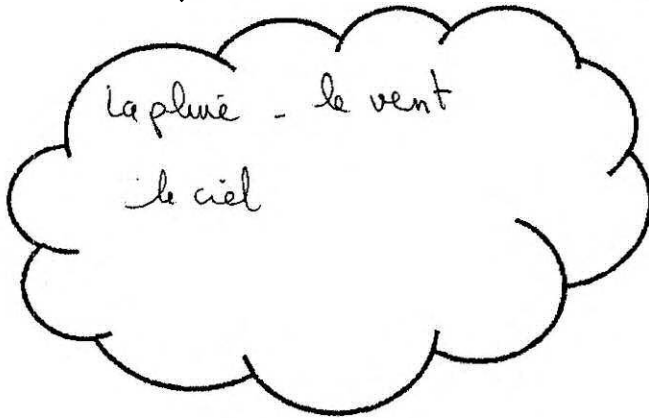 La pluie - le vent
le ciel